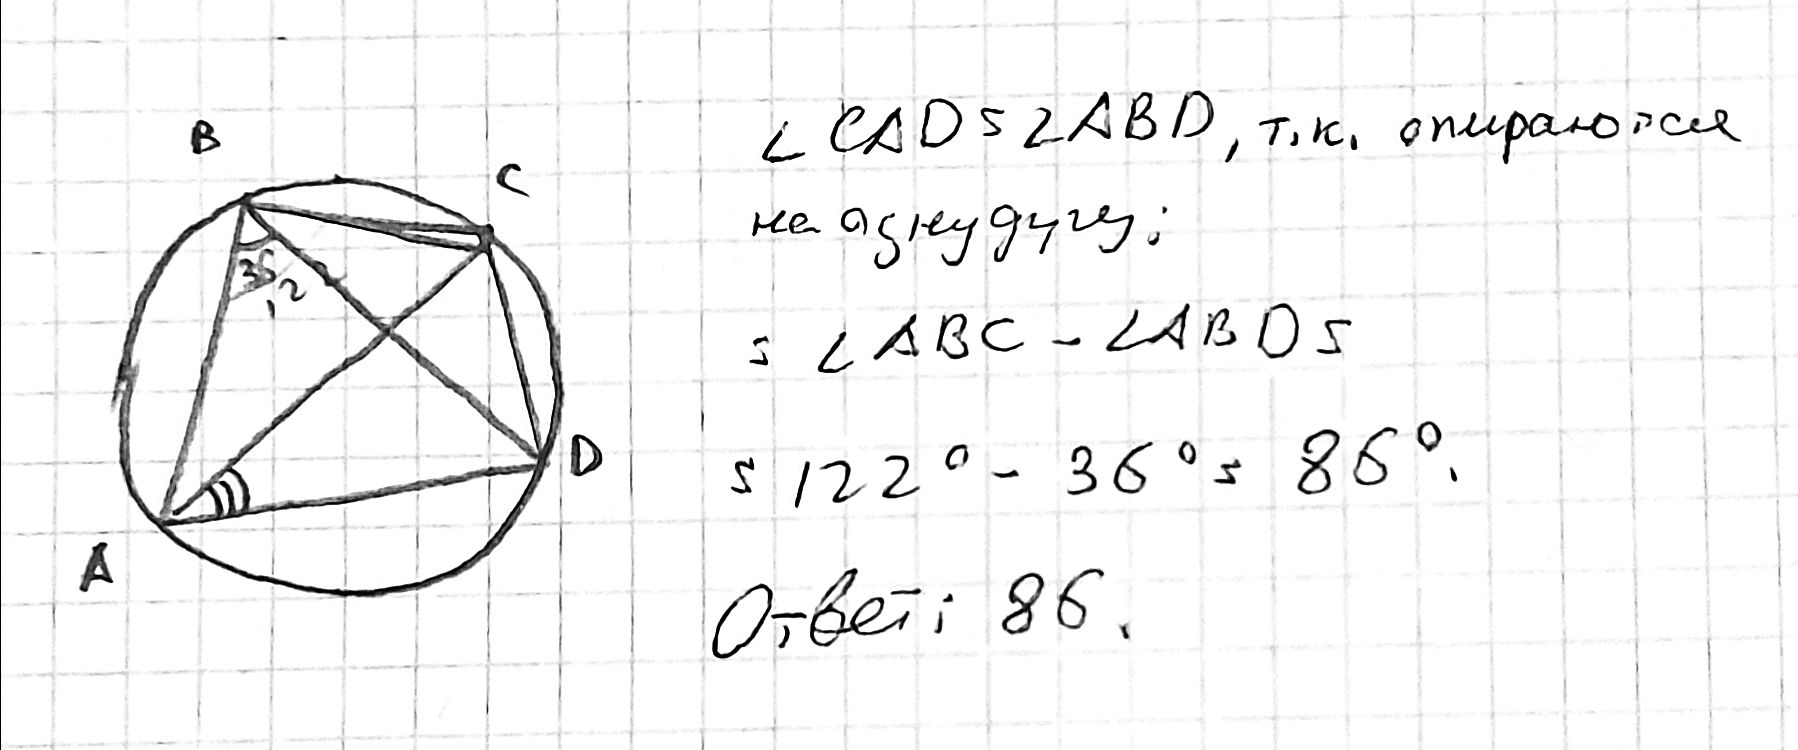 B
C
36
122
D
A
∠CAD = ∠ABD, т.к. опираются
на одну дугу:
= ∠ABC - ∠ABD =
= 122° - 36° = 86°.
Ответ: 86.